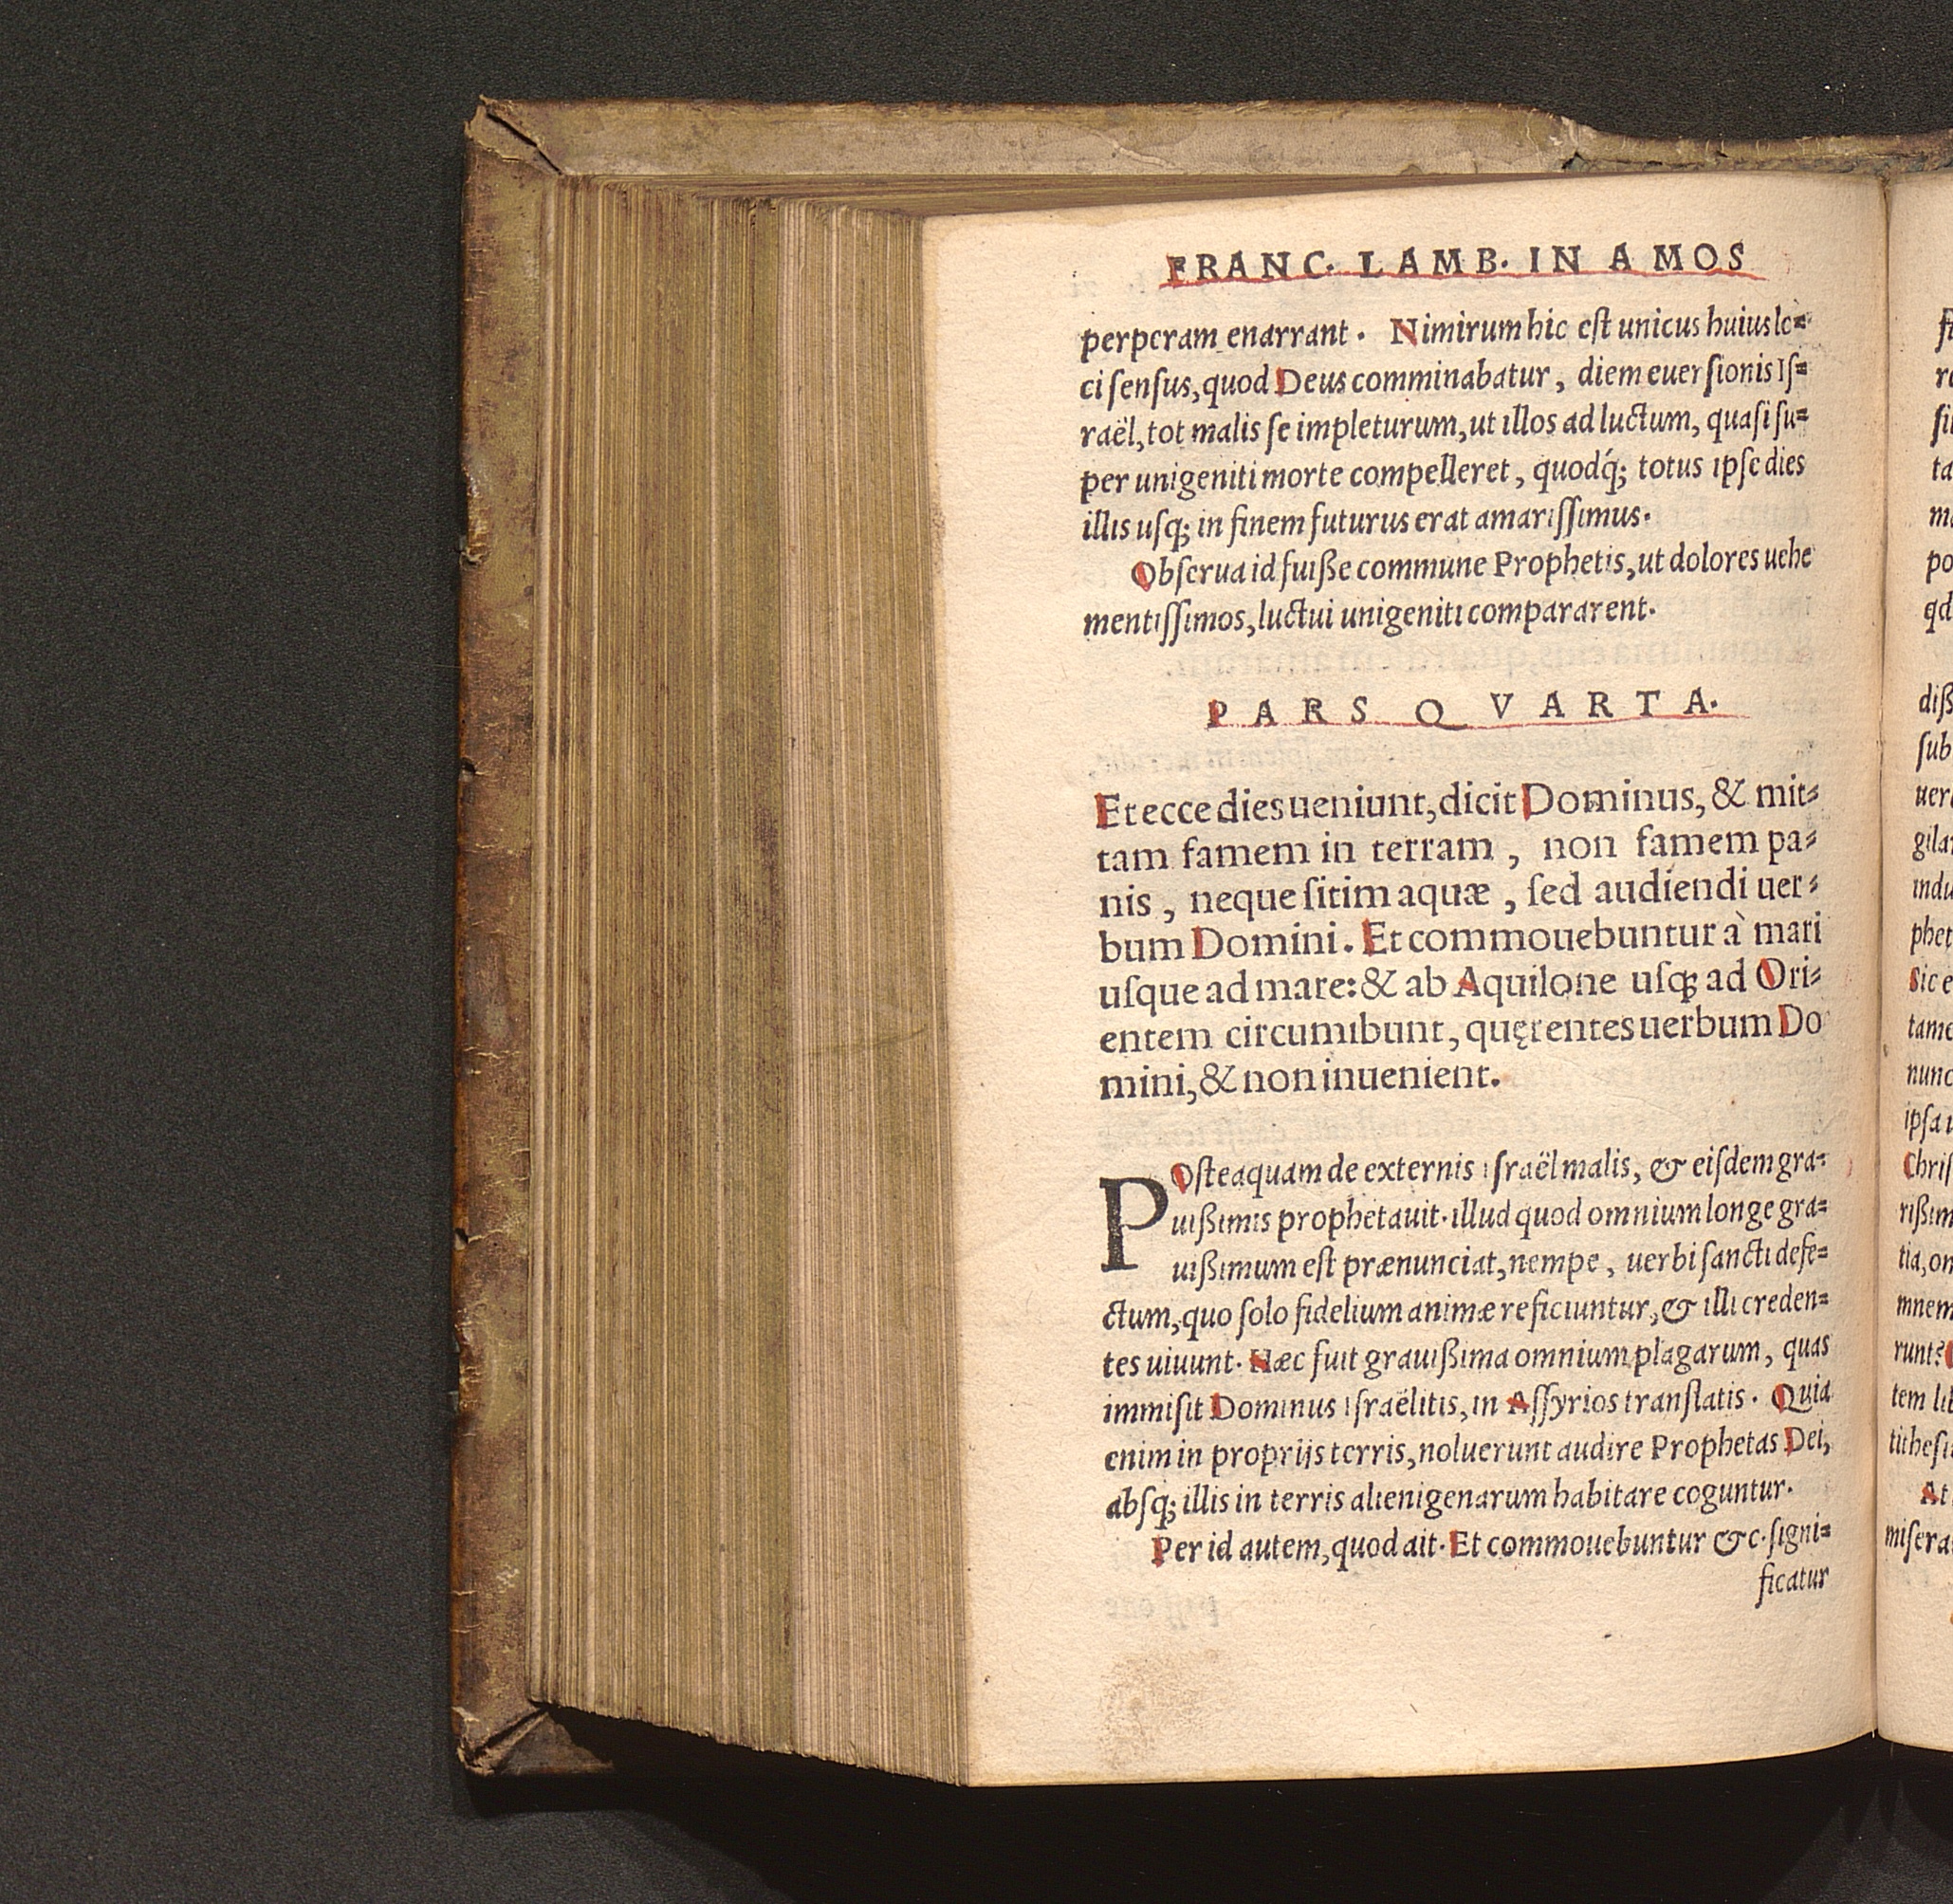 FRANC. LAMB. IN AMOS
perperam enarrant. Nimirum hic eſt unicus huius lo=
ci ſenſus, quod Deus comminabatur, diem euerſionis Iſ=
raël, tot malis ſe impleturum, ut illos ad luctum, quaſi ſu=
per unigeniti morte compelleret, quodq́; totus ipſe dies
illis uſq; in finem futurus erat amariſſimus.
Obſerua id fuiße commune Prophetis, ut dolores uehe
mentiſſimos, luctui unigeniti compararent.
PARS QVARTA.
Et ecce dies ueniunt, dicit Dominus, & mit=
tam famem in terram, non famem pa=
nis, neque ſitim aquæ, ſed audiendi uer=
bum Domini. Et commouebuntur à mari
uſque ad mare: & ab Aquilone uſq; ad Ori=
entem circumibunt, quęrentes uerbum Do
mini, & non inuenient.
POſteaquam de externis Iſraël malis, & eiſdem gra=
uißimis prophetauit. illud quod omnium longe gra=
uißimum eſt prænunciat, nempe, uerbi ſancti defe=
ctum, quo ſolo fidelium animæ reficiuntur, & illi creden=
tes uiuunt. Hæc fuit grauißima omnium plagarum, quas
immiſit Dominus Iſraëlitis, in Aſſyrios tranſlatis. Quia
enim in proprijs terris, noluerunt audire Prophetas Dei,
abſq; illis in terris alienigenarum habitare coguntur.
Per id autem, quod ait. Et commouebuntur &c. ſigni=
ficatur